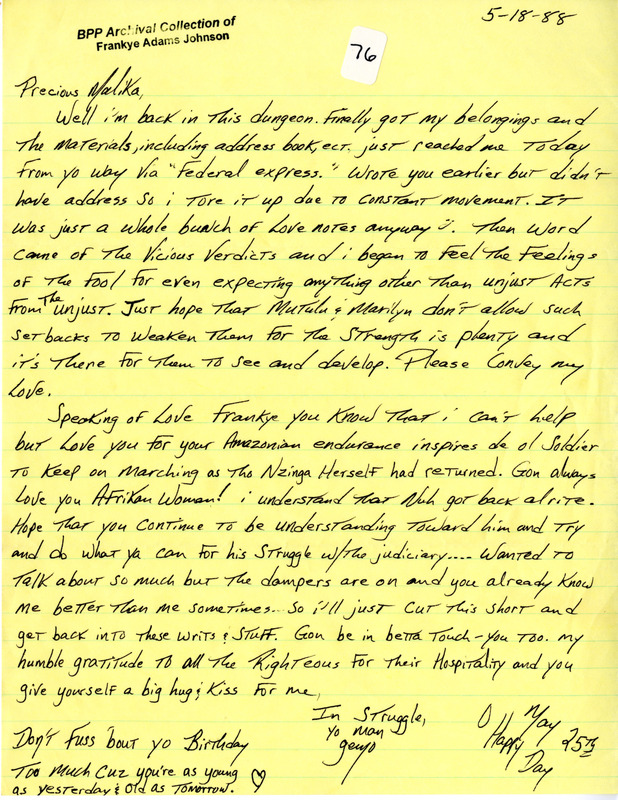 5-18-88
BPP Archival Collection of
Frankye Adams Johnson
76
Precious Malika,
Well i'm back in this dungeon. Finally got my belongings and
the materials, including address book, ect. just reached me today
from yo way via "Federal express." Wrote you earlier but didn't
have address so i tore it up due to constant movement. It
was just a whole bunch of love notes anyway. Then word
came of the vicious verdicts and i began to feel the feelings
of the fool for even expecting anything other than unjust acts
from the unjust. Just hope that Mutulu & Marilyn don't allow such
setbacks to weaken them for the strength is plenty and
it's there for them to see and develop. Please convey my
love.
Speaking of love Frankye you know that i can't help
but love you for your Amazonian endurance inspires de ol soldier
to keep on marching as tho Nzinga Herself had returned. Gon always
love you Afrikan Woman! i understand that Nuh got back alrite.
Hope that you continue to be understanding toward him and try
and do what ya can for his struggle w/the judiciary.... Wanted to
talk about so much but the dampers are on and you already know
me better than me sometimes... So i'll just cut this short and
get back into these writs & stuff. Gon be in betta touch - you too. My
humble gratitude to all the Righteous for their Hospitality and you
give yourself a big hug & kiss for me,
In Struggle,
yo man
O Happy
May 25th
Day
Don't Fuss 'bout yo Birthday
too much cuz you're as young
as yesterday & old as tomorrow. ♡